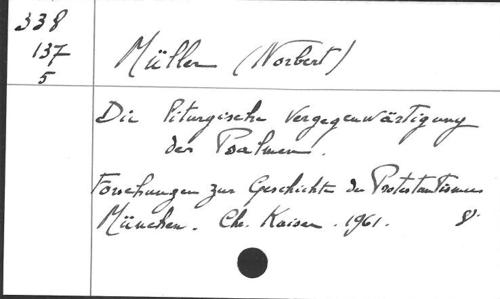 338
137
5
Müller (Norbert)
Die liturgische Vergegenwärtigung
der Psalmen.
Forschungen zur Geschichte des Protestantismus
München. Chr. Kaiser. 1961. 8°